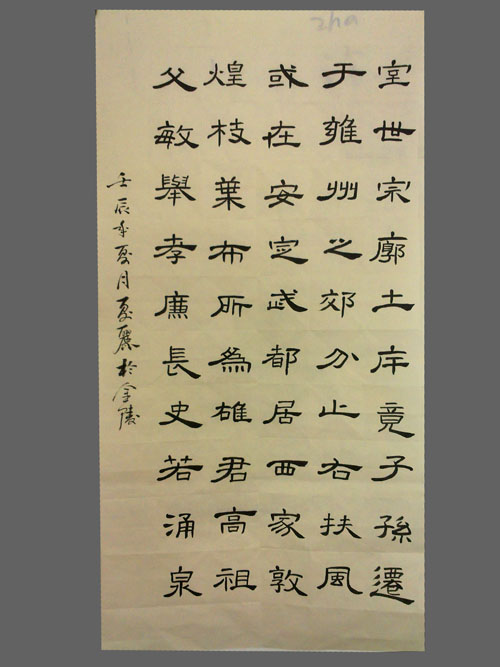 zha
室世宗廓土斥竟子孫遷
于雍州之郊分止右扶風
或在安定武都居西家敦
煌枝葉布所為雄君高祖
父敏舉孝廉長史若涌泉
壬辰年夏月夏麗於金陵